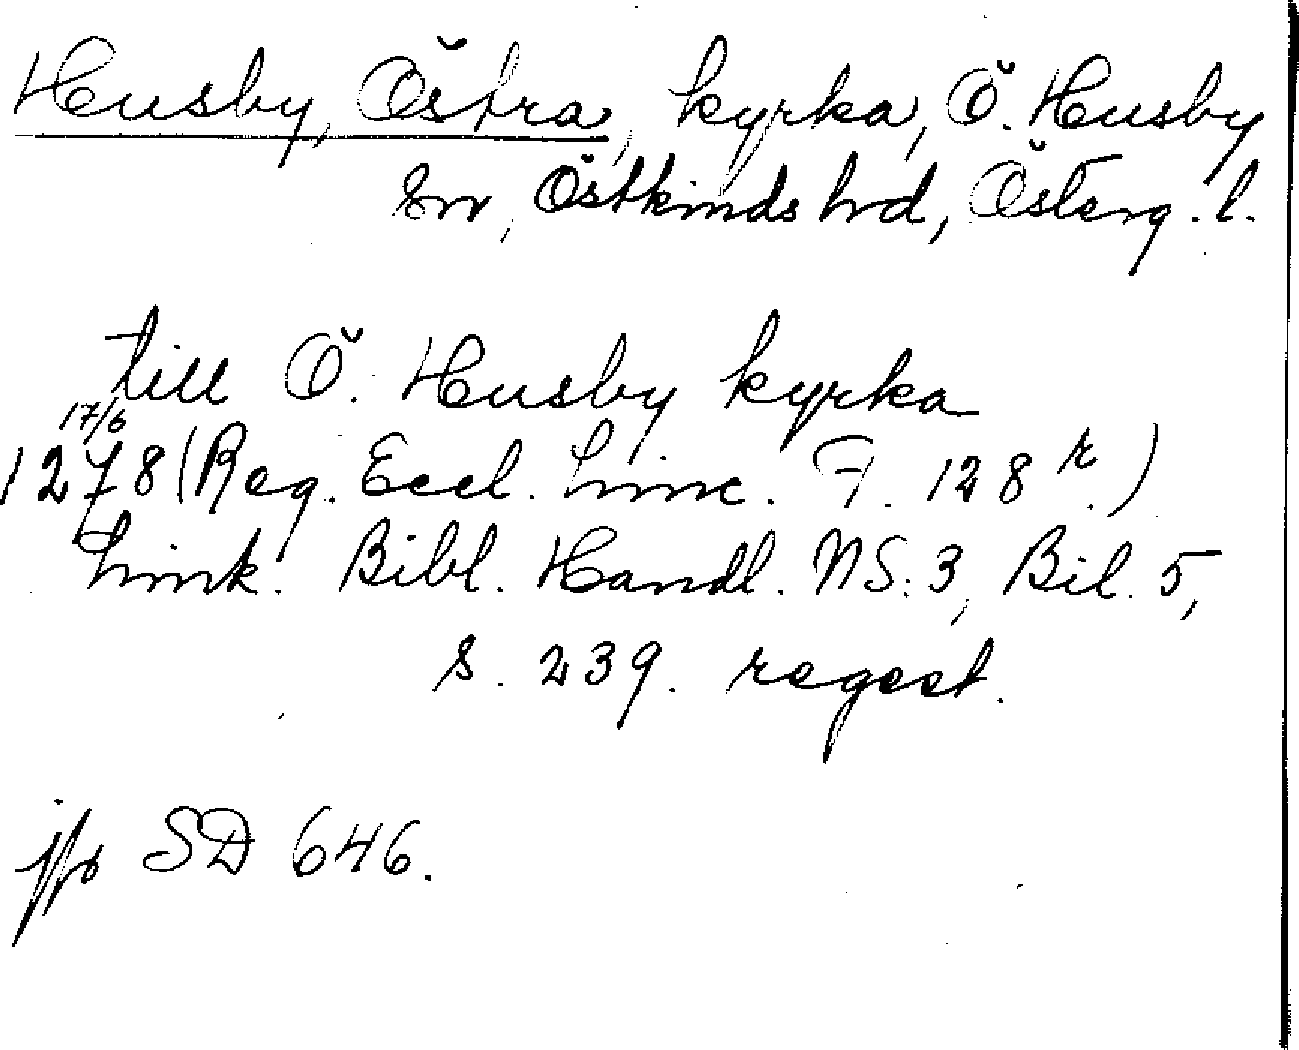 Husby, Östra, kyrka, Ö. Husby
sn, Östkinds hrd, Österg. l.
till Ö. Husby kyrka
17/6
1278 (Reg. Eccl. Linc. F. 128 r.)
Link. Bibl. Handl. NS: 3, Bil. 5,
s. 239. regest.
jfr SD 646.